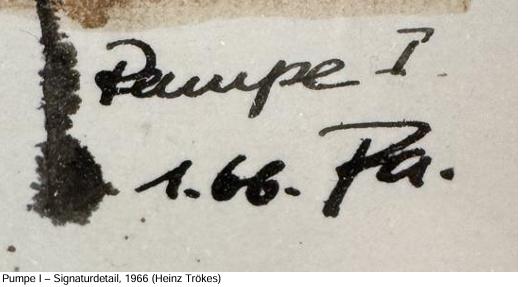 Pumpe I
1.66. Pa.
Pumpe I – Signaturdetail, 1966 (Heinz Trökes)